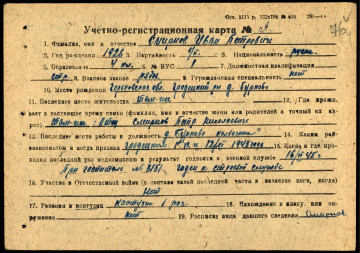 Учетно-регистрационная карта № А.
1. Фамилия, имя и отчество Смирнов Иван Петрович
2. Год рождения 1926 3. Партийность б/п 4. Национальность русск.
5. Образование 4 кл. 6. № ВУС 1 7. Должностная квалификация
стр. 8. Воинское звание ряд. 9. Гражданская специальность нет
10. Место рождения
11. Последнее место жительства 12. Где прожи-
вает в настоящее время семья (фамилия, имя и отчество жены или родителей и точный их ад-
рес)
13. Последнее место работы и должность д. Бурково колхозник 14. Каким рай-
военкоматом и когда призван 1943 года 15. Когда и где про-
ходил последний раз медкомиссию и результат годности к военной службе 16/VI 45 г.
При госпитале № 3151 годен к строевой службе
16. Участие в Отечественной войне (в составе какой последней части и качестве кого, когда)
Нет
17. Ранения и контузии контузия 1 раз 18. Нахождение в плену или ок-
ружении нет 19. Росписка лица давшего сведения Смирнов.